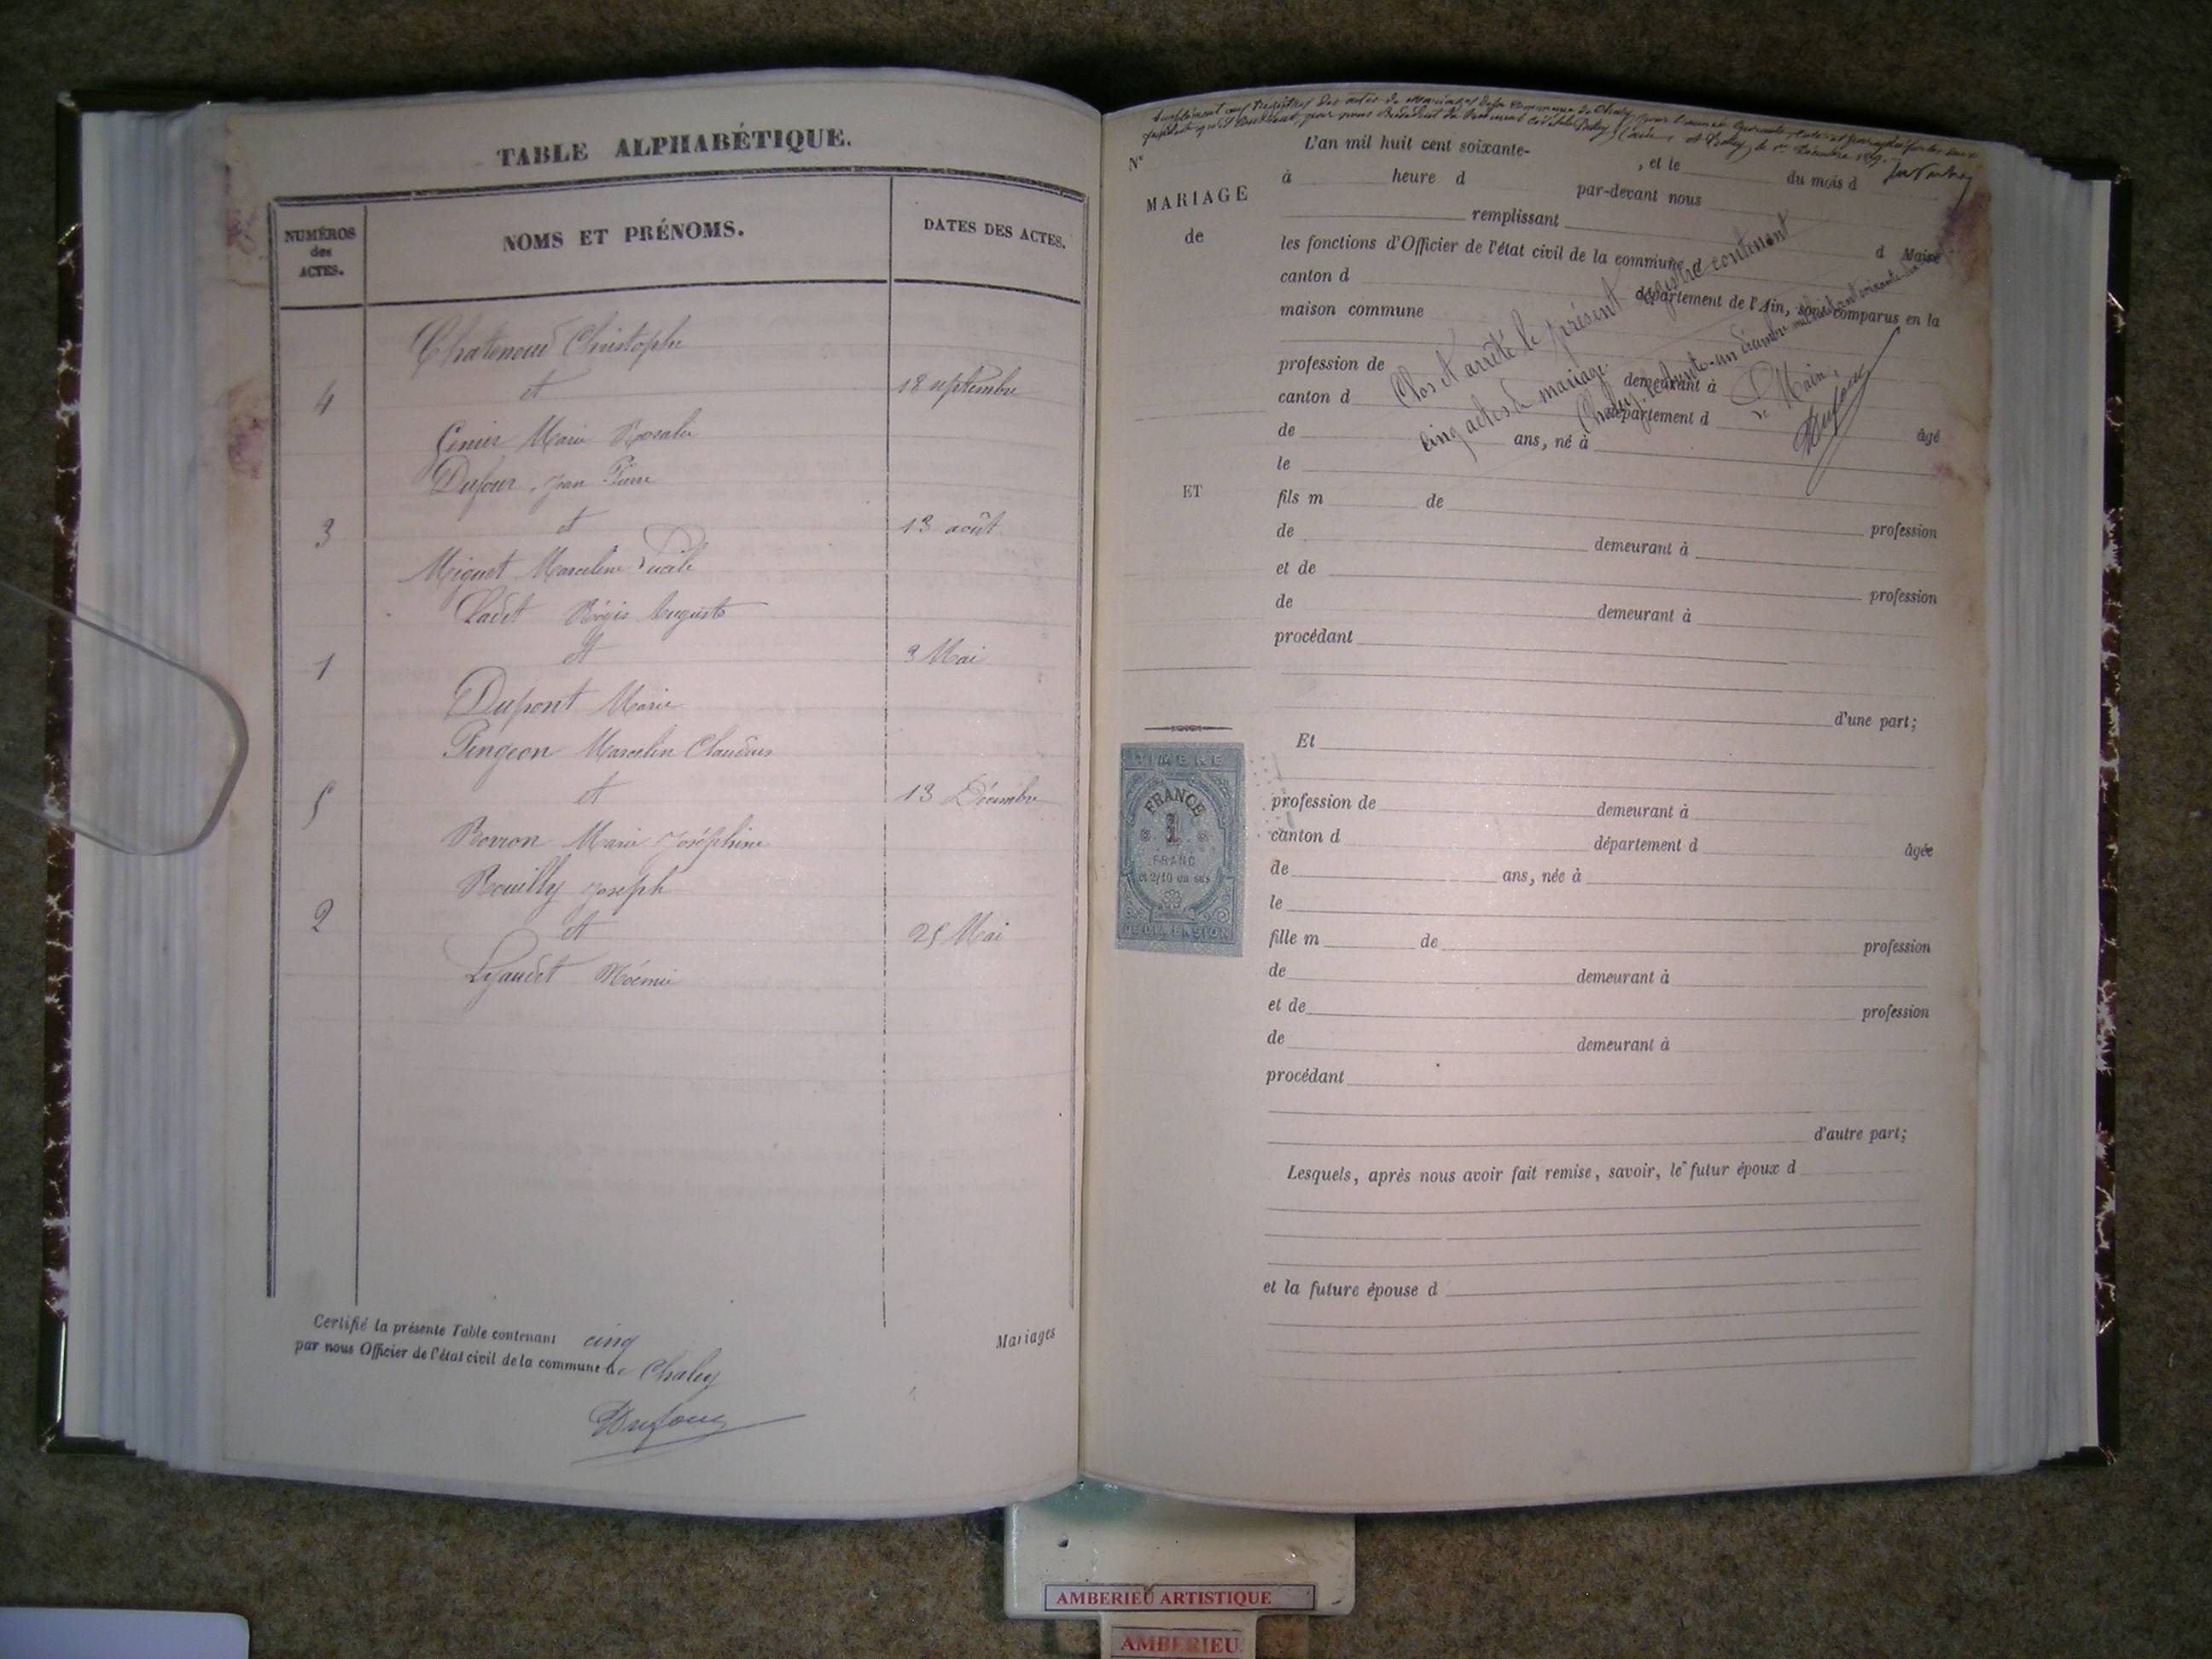 TABLE ALPHABÉTIQUE.
NUMÉROS des ACTES.
NOMS ET PRÉNOMS.
DATES DES ACTES.
Christophe
4 et 18 septembre
Marie Rosalie
Dufour, Jean Pierre
3 et 13 août
Miguet Marceline Lucile
Cadet Régis Auguste
1 et 3 Mai
Dupont Marie
Pingeon Marcelin Claudius
5 et 13 Décembre
Borron Marie Joséphine
Rouilly Joseph
2 et 25 Mai
Lyaudet Noémie
Certifié la présente Table contenant cinq Mariages
par nous Officier de l'état civil de la commune de Chaley
Dufour
Supplément aux Registres des actes de Mariages de la Commune de Chaley pour l'année
par nous Président du Tribunal civil de Belley
N°
MARIAGE
de
ET
L'an mil huit cent soixante- , et le du mois d
à heure d par-devant nous
remplissant
les fonctions d'Officier de l'état civil de la commune d
canton d département de l'Ain, sont comparus en la
maison commune
profession de demeurant à
canton d département d âgé
de ans, né à
le
fils m de
de demeurant à profession
et de
de demeurant à profession
procédant
d'une part;
Et
profession de demeurant à
canton d département d âgée
de ans, née à
le
fille m de profession
de demeurant à
et de profession
de demeurant à
procédant
d'autre part;
Lesquels, après nous avoir fait remise, savoir, le futur époux d
et la future épouse d
Clos et arrêté le présent registre contenant
cinq actes de mariage.
Chaley, le trente-un Décembre mil huit cent soixante
Le Maire,
Dufour
TIMBRE
FRANCE
1
FRANC
et 2/10 en sus
DE DIMENSION
AMBERIEU ARTISTIQUE
AMBERIEU